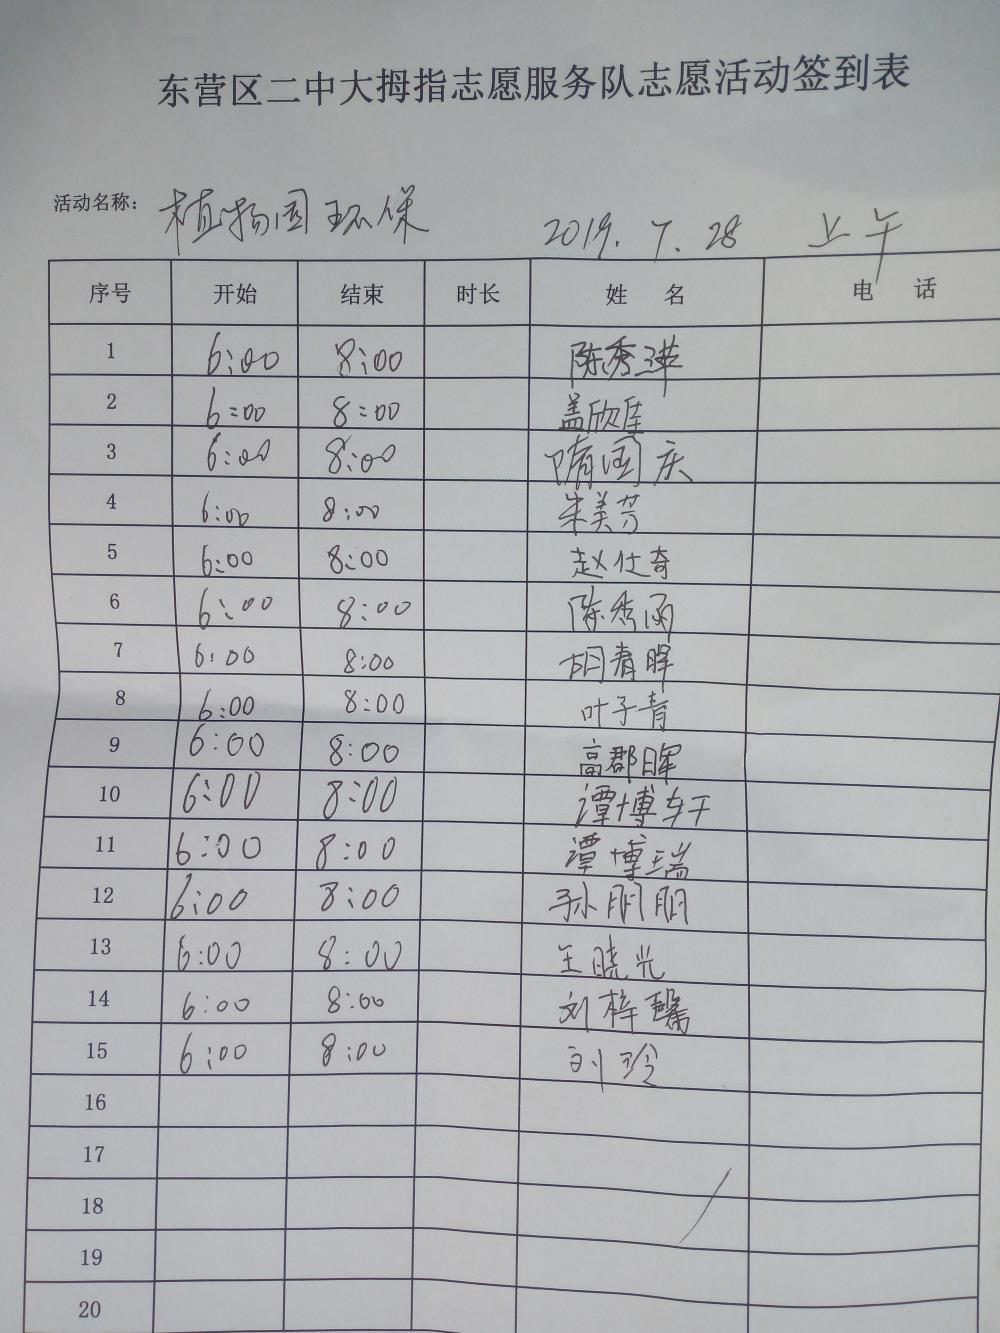 东营区二中大拇指志愿服务队志愿活动签到表
活动名称：植物园环保 2019.7.28 上午
序号 开始 结束 时长 姓名 电话
1 6:00 8:00 陈秀
2 6:00 8:00 盖欣佳
3 6:00 8:00 隋国庆
4 6:00 8:00 朱美芳
5 6:00 8:00 赵仕奇
6 6:00 8:00 陈秀涵
7 6:00 8:00 胡春晖
8 6:00 8:00 叶子青
9 6:00 8:00 高郡晖
10 6:00 8:00 谭博轩
11 6:00 8:00 谭博瑞
12 6:00 8:00 孙丽丽
13 6:00 8:00 王晓光
14 6:00 8:00 刘梓馨
15 6:00 8:00 刘玲
16
17
18
19
20